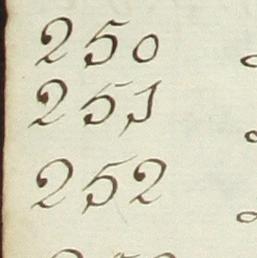 250
251
252